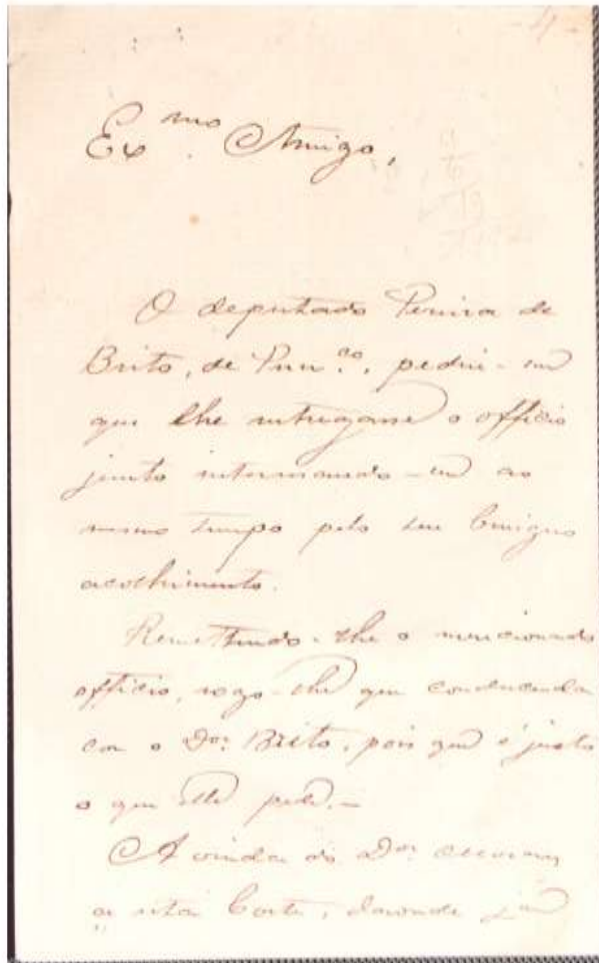 - 4 -
Ex.mo Amigo,
O deputado Pereira de
Brito, de Pern.co, pediu-me
que lhe entregasse o officio
junto interessando-me ao
mesmo tempo pelo seu benigno
acolhimento.
Remettendo-lhe o mencionado
officio, rogo-lhe que condescenda
com o Dor. Brito, pois que é justo
o que elle pede.-
A vinda do Dor.
a esta Corte, já